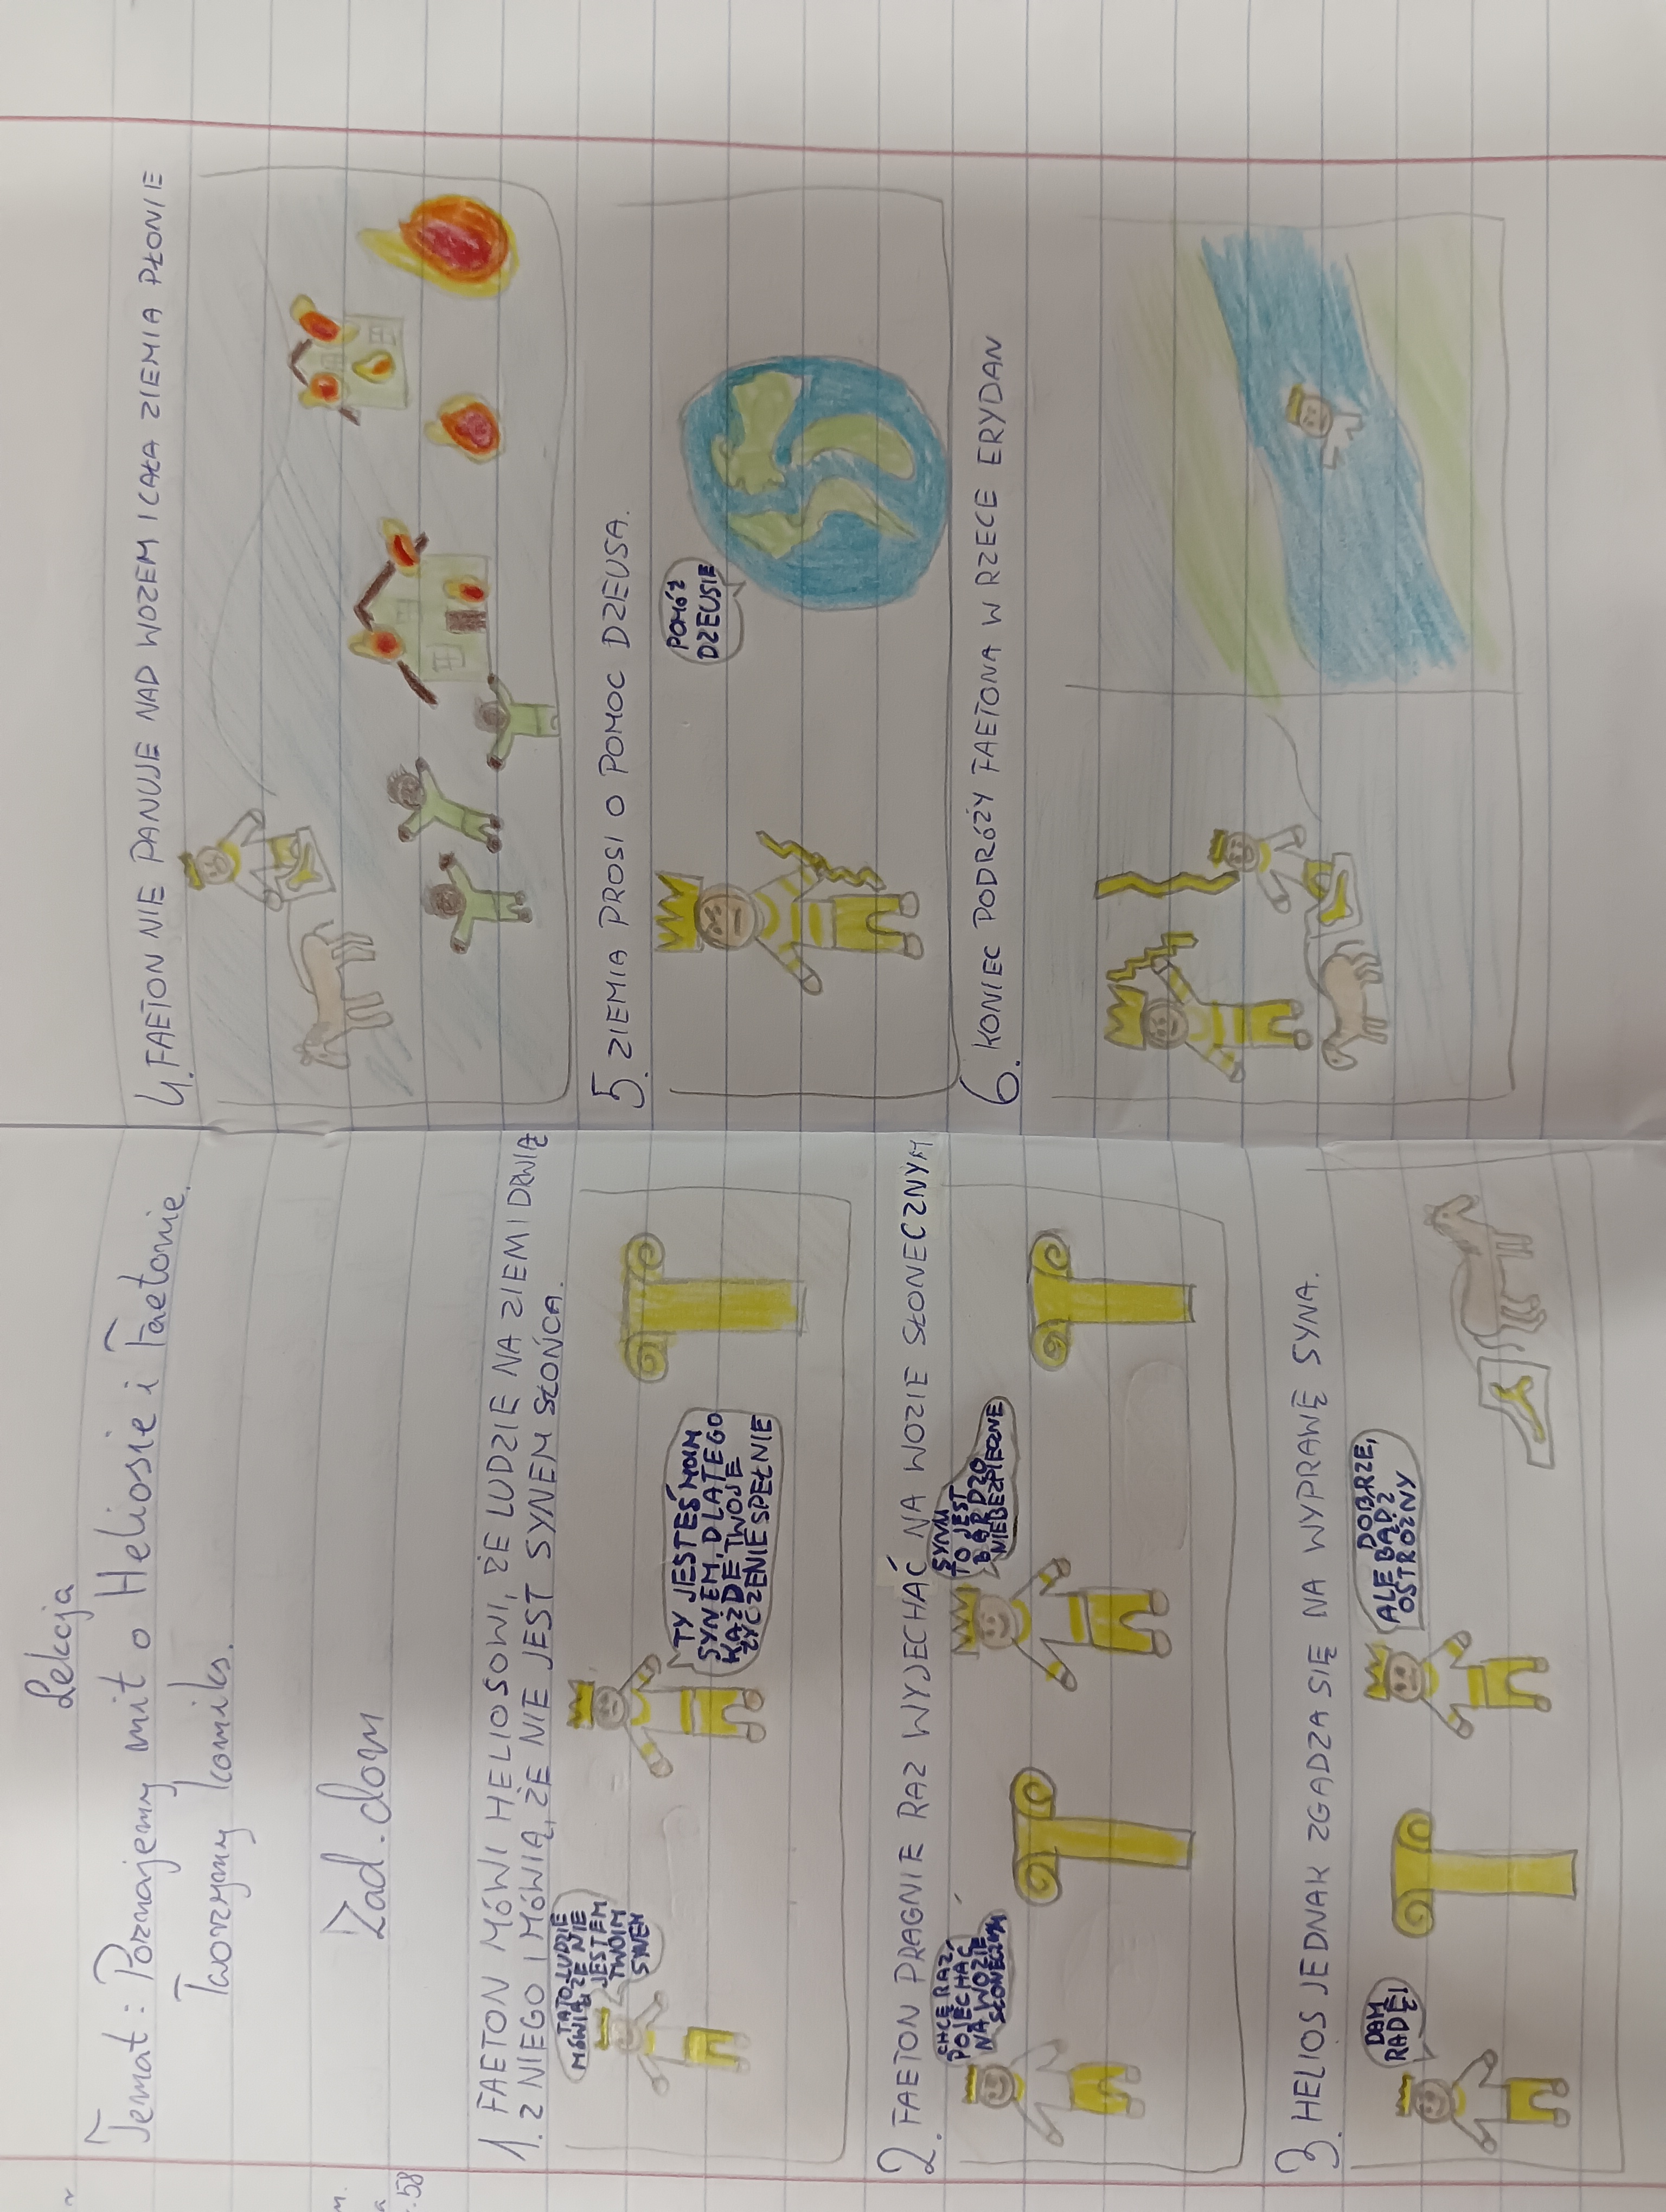 Lekcja
Temat: Poznajemy mit o Heliosie i Faetonie.
Tworzymy komiks.
Zad. dom
1. FAETON MÓWI HELIOSOWI, ŻE LUDZIE NA ZIEMI DRWIĄ
Z NIEGO I MÓWIĄ, ŻE NIE JEST SYNEM SŁOŃCA.
TATO LUDZIE
MÓWIĄ, ŻE NIE
JESTEM
TWOIM
SYNEM
TY JESTEŚ MOIM
SYNEM, DLATEGO
KAŻDE TWOJE
ŻYCZENIE SPEŁNIE
2. FAETON PRAGNIE RAZ WYJECHAĆ NA WOZIE SŁONECZNYM
CHCĘ RAZ
POJECHAĆ
NA WOZIE
SŁONECZNYM
SYNU
TO JEST
BARDZO
NIEBEZPIECZNE
3. HELIOS JEDNAK ZGADZA SIĘ NA WYPRAWĘ SYNA.
DAM
RADĘ!
DOBRZE,
ALE BĄDŹ
OSTROŻNY
4. FAETON NIE PANUJE NAD WOZEM I CAŁA ZIEMIA PŁONIE
5. ZIEMIA PROSI O POMOC DZEUSA.
POMÓŻ
DZEUSIE
6. KONIEC PODRÓŻY FAETONA W RZECE ERYDAN
58